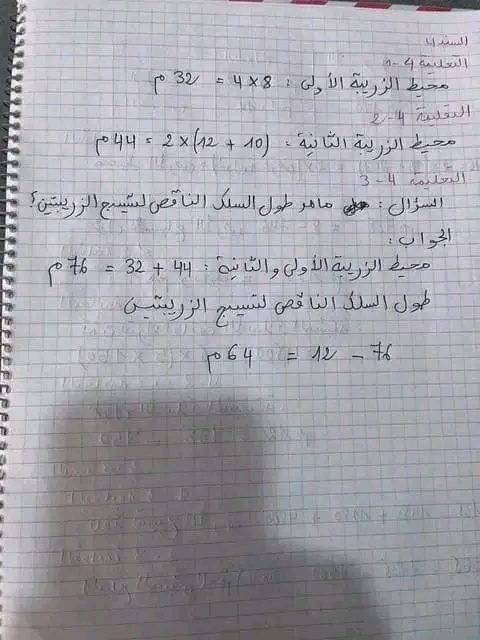 السند 4
التعليمة 4-1
محيط الزريبة الأولى : 8 × 4 = 32 م
التعليمة 4-2
محيط الزريبة الثانية : (10 + 12) × 2 = 44 م
التعليمة 4-3
السؤال : ماهو طول السلك الناقص لتسييج الزريبتين ؟
الجواب :
محيط الزريبة الأولى والثانية : 44 + 32 = 76 م
طول السلك الناقص لتسييج الزريبتين
76 - 12 = 64 م